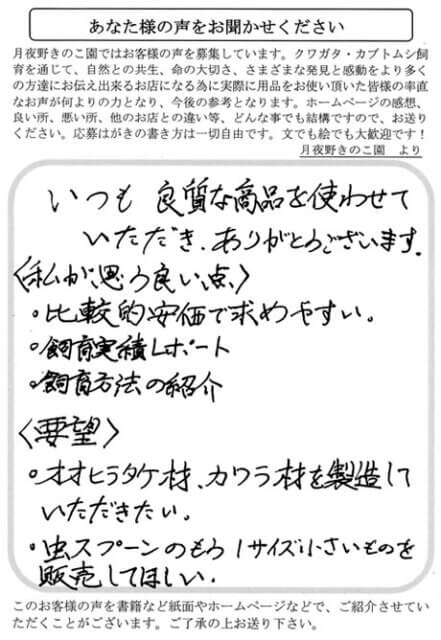 あなた様の声をお聞かせください
月夜野きのこ園ではお客様の声を募集しています。クワガタ・カブトムシ飼
育を通じて、自然との共生、命の大切さ、さまざまな発見と感動をより多く
の方達にお伝え出来るお店になる為に実際に用品をお使い頂いた皆様の率直
なお声が何よりの力となり、今後の参考となります。ホームページの感想、
良い所、悪い所、他のお店との違い等、どんな事でも結構ですので、お送り
ください。応募はがきの書き方は一切自由です。文でも絵でも大歓迎です！
月夜野きのこ園　より
いつも 良質な商品を使わせて
いただき、ありがとうございます。
〈私が思う良い点〉
・比較的安価で求めやすい。
・飼育実績レポート
・飼育方法の紹介
〈要望〉
・オオヒラタケ材、カワラ材を製造して
いただきたい。
・虫スプーンのもう1サイズ小さいものを
販売してほしい。
このお客様の声を書籍など紙面やホームページなどで、ご紹介させてい
ただくことがございます。ご了承の上お送り下さい。